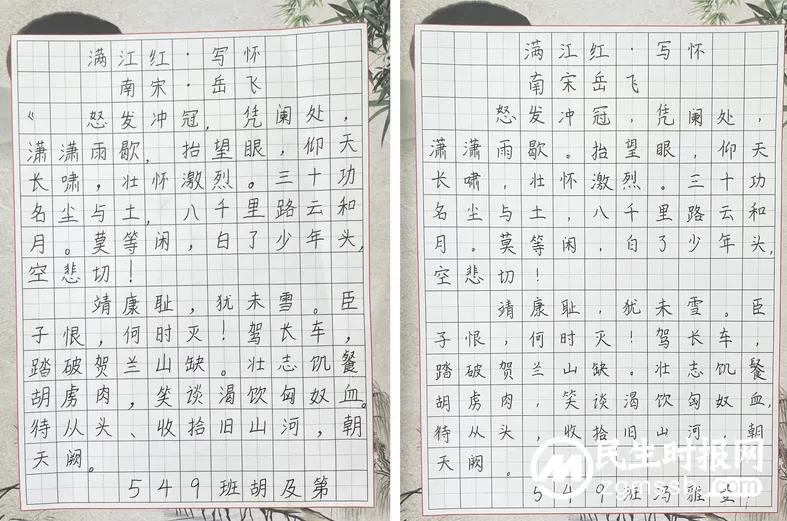 满江红·写怀
南宋·岳飞
《 怒发冲冠,凭阑处,
潇潇雨歇,抬望眼,仰天
长啸,壮怀激烈。三十功
名尘与土,八千里路云和
月。莫等闲,白了少年头,
空悲切!
靖康耻,犹未雪。臣
子恨,何时灭!驾长车,
踏破贺兰山缺。壮志饥餐
胡虏肉,笑谈渴饮匈奴血。
待从头、收拾旧山河,朝
天阙。
549班胡及第
满江红·写怀
南宋岳飞
怒发冲冠,凭阑处,
潇潇雨歇。抬望眼,仰天
长啸,壮怀激烈。三十功
名尘与土,八千里路云和
月。莫等闲,白了少年头,
空悲切!
靖康耻,犹未雪。臣
子恨,何时灭!驾长车,
踏破贺兰山缺。壮志饥餐
胡虏肉,笑谈渴饮匈奴血,
待从头,收拾旧山河,朝
天阙。
549班冯雅
民生时报网